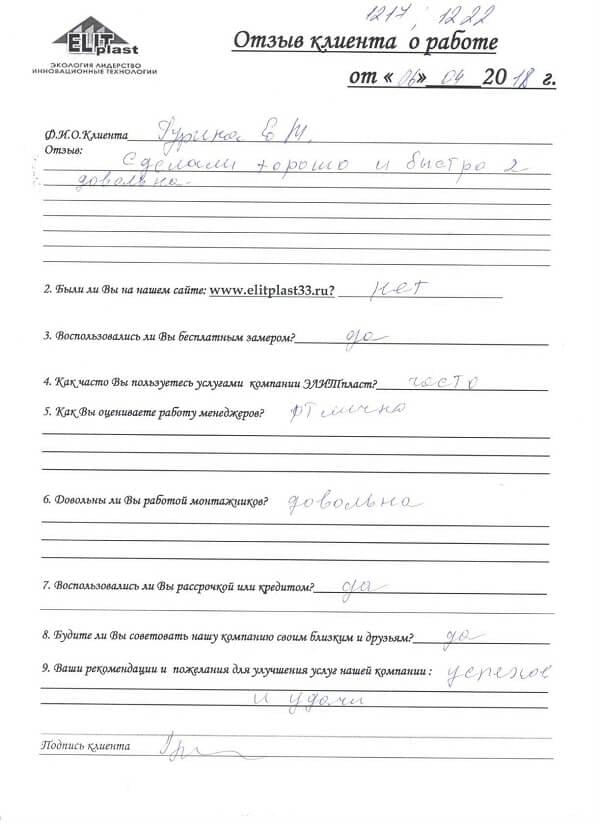 1217; 1222
ELIT plast
ЭКОЛОГИЯ ЛИДЕРСТВО
ИННОВАЦИОННЫЕ ТЕХНОЛОГИИ
Отзыв клиента о работе
от «06» 04 2018 г.
Ф.И.О.Клиента Гурина Е М.
Отзыв:
Сделали хорошо и быстро
довольна.
2. Были ли Вы на нашем сайте: www.elitplast33.ru? нет
3. Воспользовались ли Вы бесплатным замером? да
4. Как часто Вы пользуетесь услугами компании ЭЛИТпласт? часто
5. Как Вы оцениваете работу менеджеров? отлично
6. Довольны ли Вы работой монтажников? довольна
7. Воспользовались ли Вы рассрочкой или кредитом? да
8. Будите ли Вы советовать нашу компанию своим близким и друзьям? да
9. Ваши рекомендации и пожелания для улучшения услуг нашей компании : успехов
и удачи
Подпись клиента